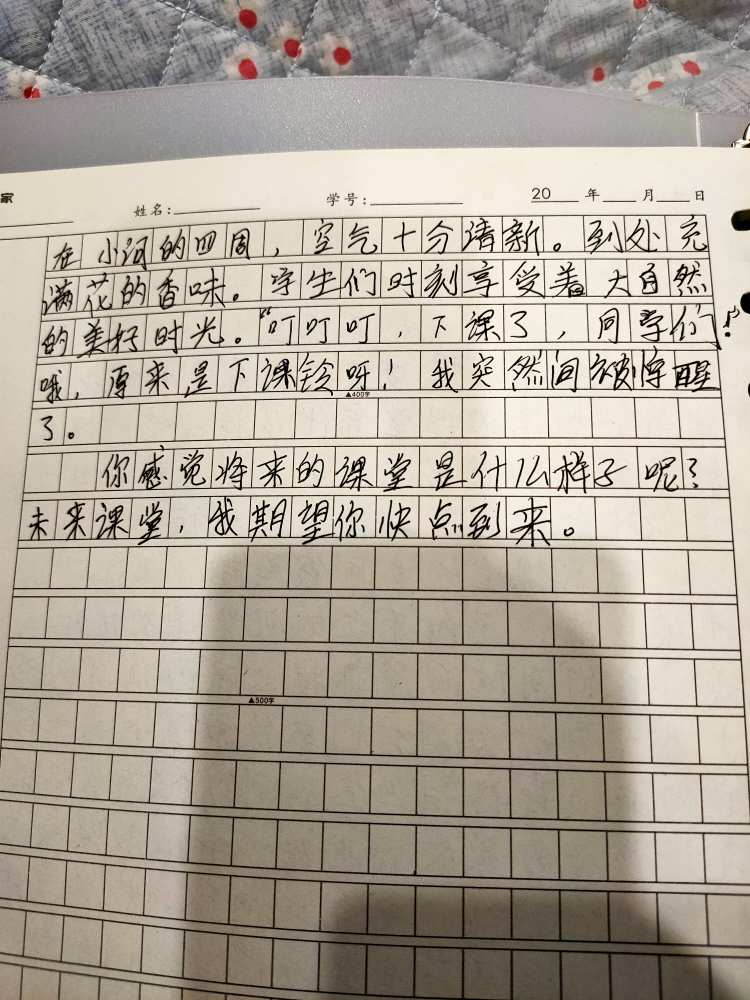 家
姓名: 学号: 20 年 月 日
在小河的四周，空气十分清新。到处充
满花的香味。学生们时刻享受着大自然
的美好时光。“叮叮叮，下课了，同学们！”
哦，原来是下课铃呀！我突然间被惊醒
▲400字
了。
你感觉将来的课堂是什么样子呢？
未来课堂，我期望你快点到来。
▲500字